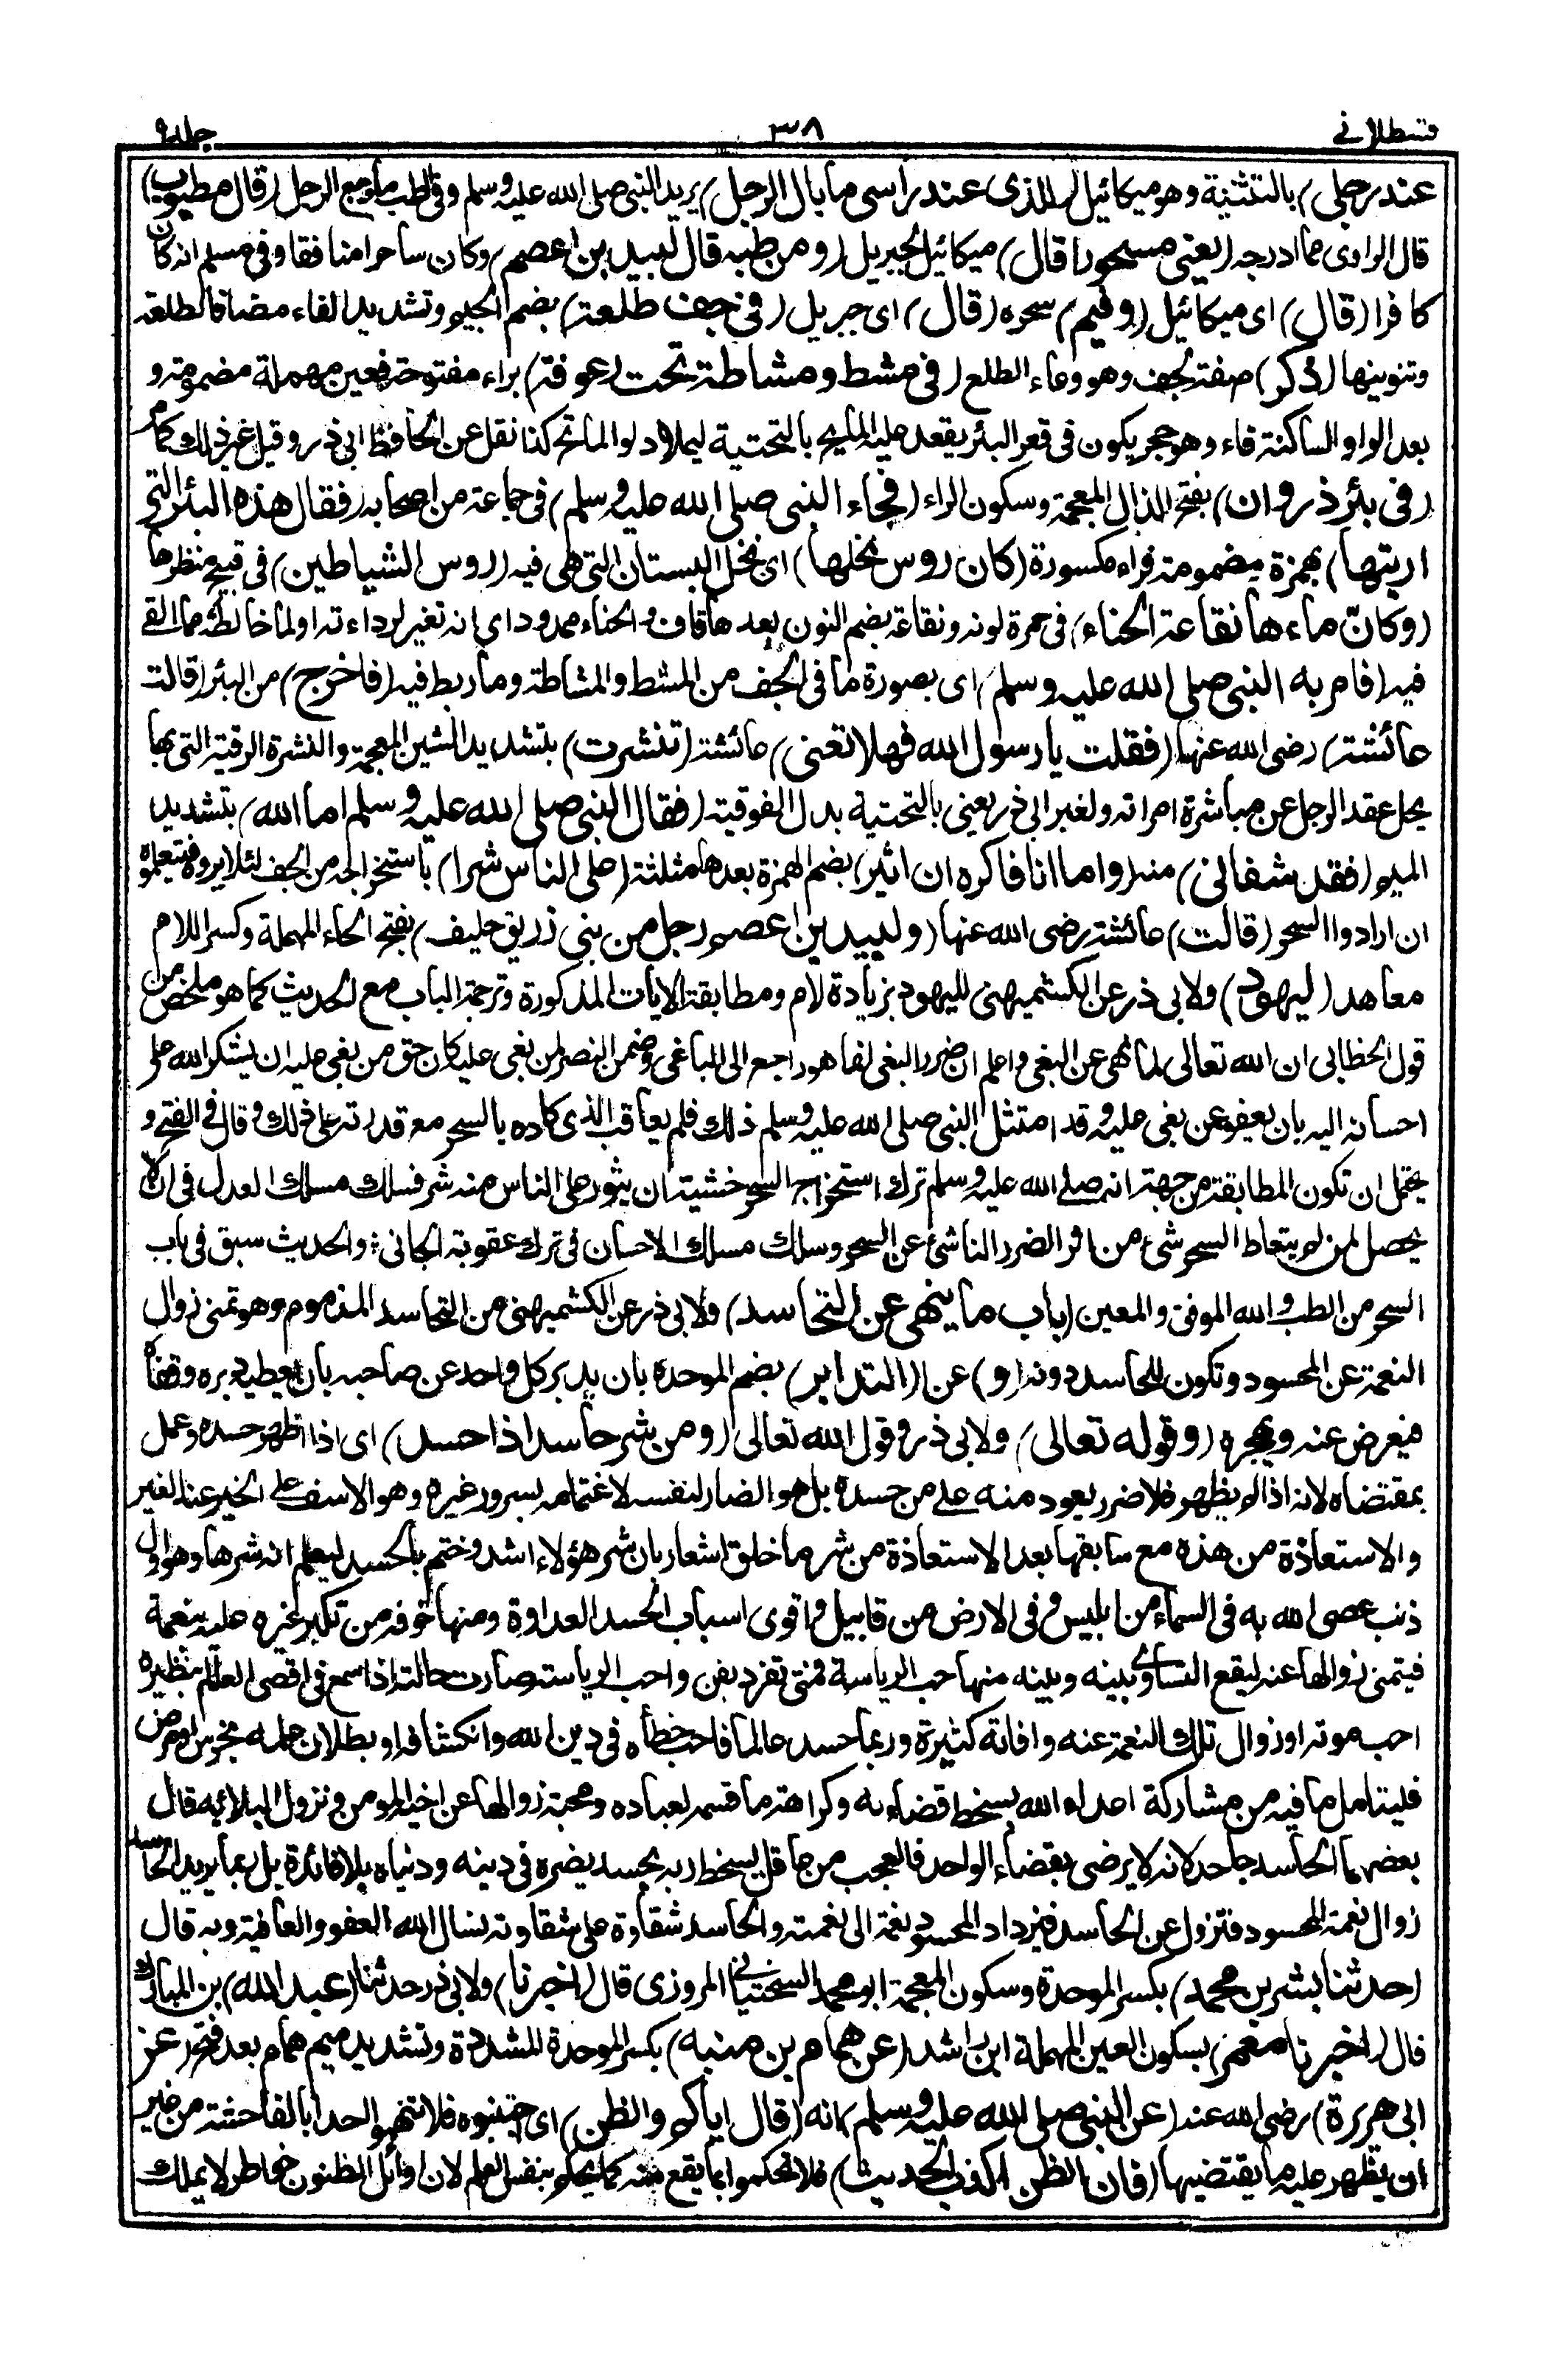 قسطلانی
٣٨
جلد ٩
عند رجلي) بالتثنية وهو ميكائيل (للذي عند راسي ما بال الرجل) يريد النبي صلى الله عليه وسلم وفي الطب ما وجع الرجل (قال مطبوب)
قال الراوي مما ادرجه (يعني مسحورا قال) ميكائيل لجبريل (ومن طبه قال لبيد بن اعصم) وكان ساحرا منافقا وفي مسلم انه كان
كافرا (قال) اي ميكائيل (وفيم) سحره (قال) اي جبريل (في جف طلعة) بضم الجيم وتشديد الفاء مضافا لطلعة
وتنوينها (ذكر) صفة لجف وهو وعاء الطلع (في مشط ومشاطة تحت رعوفة) براء مفتوحة فعين مهملة مضمومة و
بعد الواو الساكنة فاء وهو حجر يكون في قعر البئر يقعد عليه المايح بالتحتية ليملا دلو الماتح كذا نقل عن الحافظ ابي ذر وقيل غير ذلك كما مر
(في بئر ذروان) بفتح الذال المعجمة وسكون الراء (فجاء النبي صلى الله عليه وسلم) في جماعة من اصحابه (فقال هذه البئر التي
اريتها) بهمزة مضمومة فراء مكسورة (كان روس نخلها) اي نخل البستان التي هي فيه (روس الشياطين) في قبيح منظرها
(وكانّ ماءها نقاعة الحناء) في حمرة لونه ونقاعة بضم النون بعدها قاف والحناء ممدود اي انه تغير لرداءته او لما خالطه مما القي
فيه (فامر به النبي صلى الله عليه وسلم) اي بصورة ما في الجف من المشط والمشاطة وما ربط فيه (فاخرج) من البئر (قالت
عائشة) رضى الله عنها (فقلت يا رسول الله فهلا تعني) عائشة (تنشرت) بتشديد الشين المعجمة والنشرة الرقية التي بها
يحل عقد الرجل عن مباشرة امراته ولغير ابي ذر يعني بالتحتية بدل الفوقية (فقال النبي صلى الله عليه وسلم اما الله) بتشديد
الميم (فقد شفاني) منه (واما انا فاكره ان اثير) بضم الهمزة بعدها مثلثة (على الناس شرا) باستخراجه من الجف لئلا يروه فيتعلموه
ان ارادوا السحر (قالت) عائشة رضى الله عنها (ولبيد بن اعصم رجل من بني زريق حليف) بفتح الحاء المهملة وكسر اللام
معاهد (ليهود) ولابي ذر عن الكشميهني لليهود بزيادة لام ومطابقة الايات المذكورة وترجمة الباب مع الحديث كما هو ملخص من
قول الخطابي ان الله تعالى لما نهى عن البغي واعلم ان ضرر البغي انما هو راجع الى الباغي وضمن النصر لمن بغي عليه كان حق من بغي عليه ان يشكر الله على
احسانه اليه بان يعفو عمن بغى عليه وقد امتثل النبي صلى الله عليه وسلم ذلك فلم يعاقب الذي كاده بالسحر مع قدرته على ذلك وقال في الفتح و
يحتمل ان تكون المطابقة من جهة انه صلى الله عليه وسلم ترك استخراج السحر خشية ان يثور على الناس منه شر فسلك مسلك العدل في ان لا
يحصل لمن لم يتعاط السحر شئ من اثر الضرر الناشئ عن السحر وسلك مسلك الاحسان في ترك عقوبة الجاني؛ والحديث سبق في باب
السحر من الطب والله الموفق والمعين (باب ما ينهى عن التحاسد) ولابي ذر عن الكشميهني من التحاسد المذموم وهو تمني زوال
النعمة عن المحسود وتكون للحاسد دونه (و) عن (التدابر) بضم الموحدة بان يدبر كل واحد عن صاحبه بان يعطيه دبره وقفاه
فيعرض عنه ويهجره (وقوله تعالى) ولابي ذر وقول الله تعالى (ومن شر حاسد اذا حسد) اي اذا اظهر حسده وعمل
بمقتضاه لانه اذا لم يظهر فلا ضرر يعود منه على من حسده بل هو الضار لنفسه لاغتمامه بسرور غيره وهو الاسف على الخير عند الغير
والاستعاذة من هذه مع سابقها بعد الاستعاذة من شر ما خلق اشعار بان شر هؤلاء اشد وختم بالحسد ليعلم انه شرها وهو اول
ذنب عصى الله به في السماء من ابليس وفي الارض من قابيل واقوى اسباب الحسد العداوة ومنها خوفه من تكبر غيره عليه بنعمة
فيتمنى زوالها عنه ليقع التساوي بينه وبينه ومنها حب الرياسة فمتى تفرد بفن واحب الرياسة صارت حالته اذا سمع في اقصى العالم بنظيره
احب موته او زوال تلك النعمة عنه وافاته كثيرة وربما حسد عالما فاحب خطأه في دين الله وانكشافه او بطلان علمه بخرس او مرض
فليتامل ما فيه من مشاركة اعداء الله بسخط قضاءه وكراهته ما قسمه لعباده ومحبة زوالها عن اخيه المومن ونزول البلاء به قال
بعضهم الحاسد جاحد لانه لا يرضى بقضاء الواحد فالعجب من عاقل يسخط ربه بحسد يضره في دينه ودنياه بلا فائدة بل ربما يريد الحاسد
زوال نعمة المحسود فتزول عن الحاسد فيزداد المحسود نعمة الى نعمته والحاسد شقاوة على شقاوته نسال الله العفو والعافية وبه قال
(حدثنا بشر بن محمد) بكسر الموحدة وسكون المعجمة ابو محمد السختياني المروزي قال (اخبرنا) ولابي ذر حدثنا (عبد الله) بن المبارك
قال (اخبرنا معمر) بسكون العين المهملة ابن راشد (عن همام بن منبه) بكسر الموحدة المشددة وتشديد ميم همام بعد فتح (عن
ابي هريرة) رضى الله عنه (عن النبي صلى الله عليه وسلم) انه (قال اياكم والظن) اي اجتنبوه فلا تتهموا احدا بالفاحشة من غير
ان يظهر عليه ما يقتضيها (فان الظن اكذب الحديث) فلا تحكموا بما يقع منه كما يحكم بنفس العلم لان اوائل الظنون خواطر لا يملك